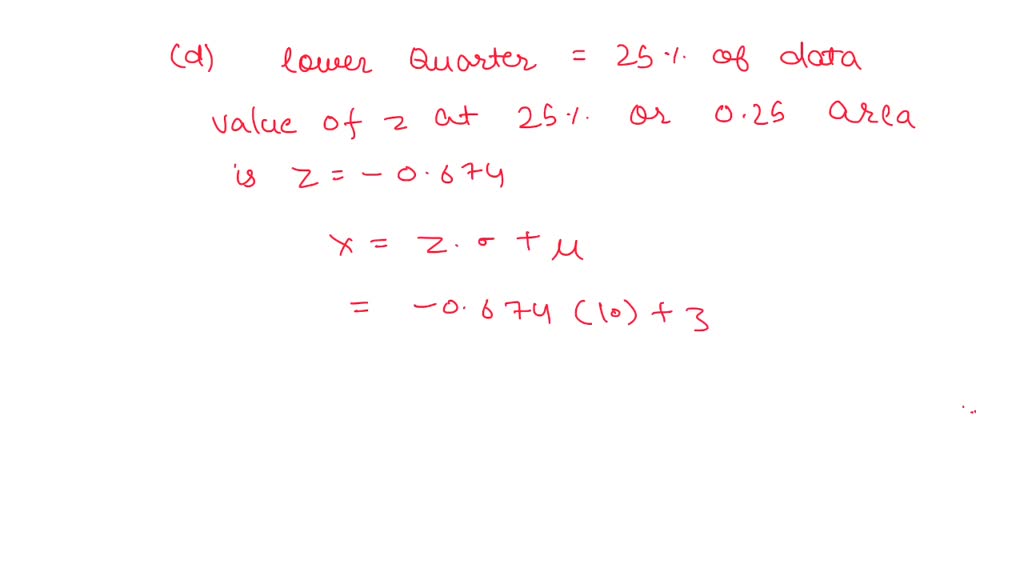 (d) lower Quarter = 25 % of data
value of z at 25 % or 0.25 area
is z = - 0.674
x = z . σ + μ
= - 0.674 (10) + 3